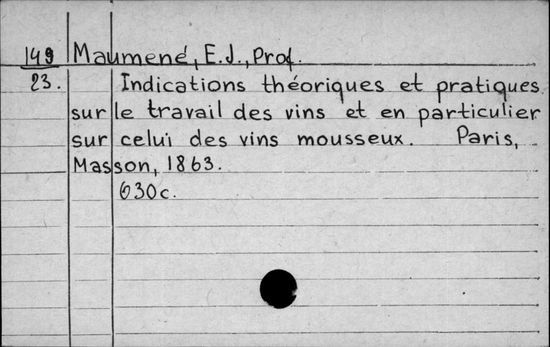 149 Maumené, E.J., Prof.
23. Indications théoriques et pratiques
sur le travail des vins et en particulier
sur celui des vins mousseux. Paris,
Masson, 1863.
630c.